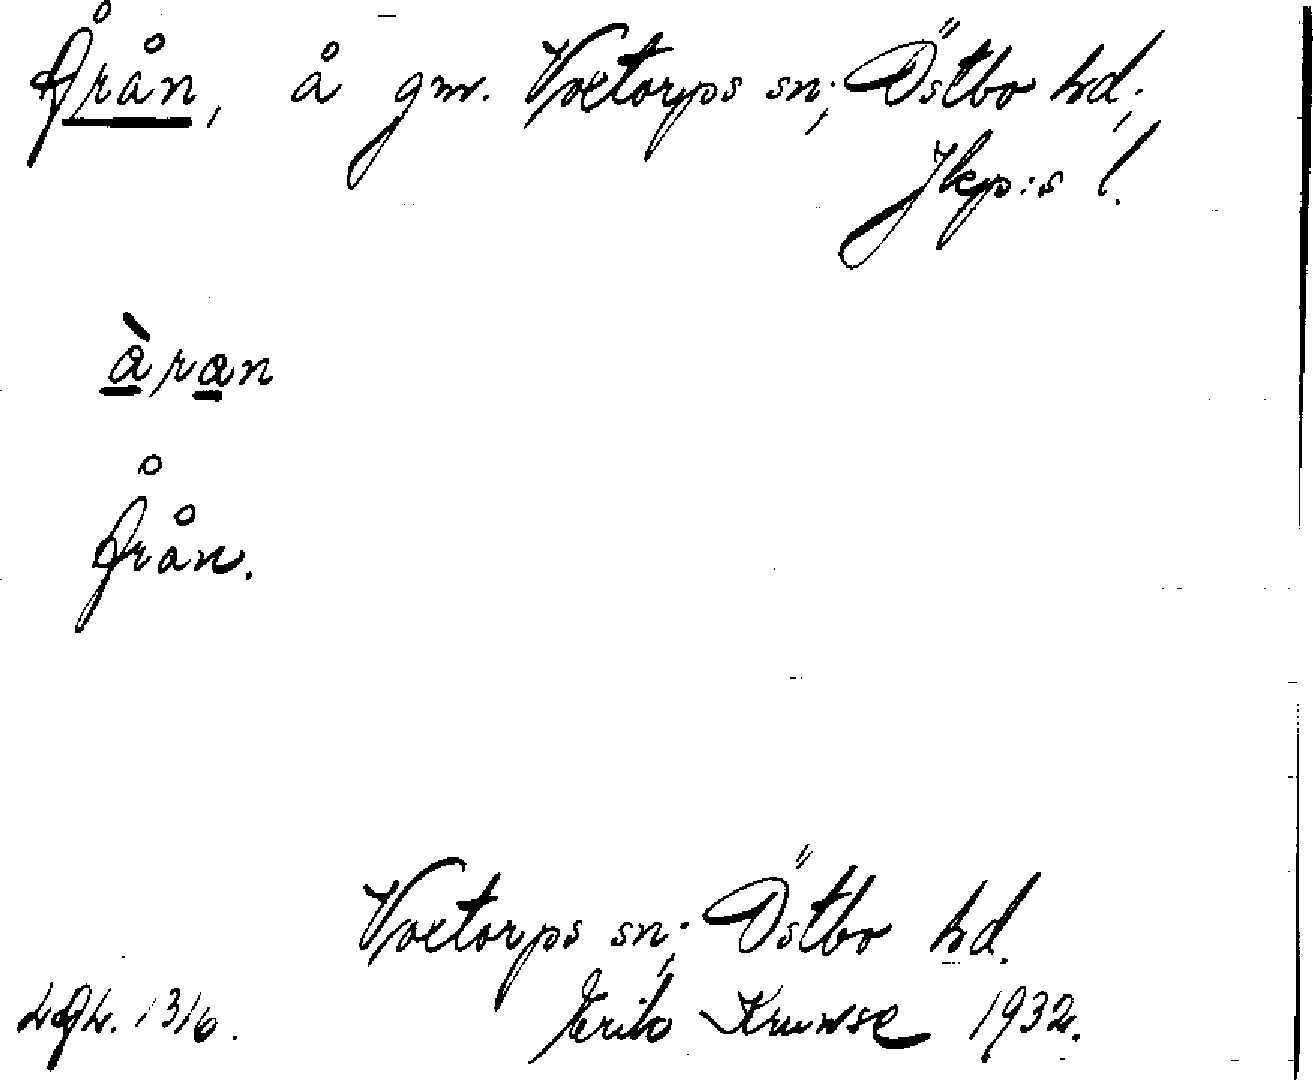 Årån, å gm. Voxtorps sn; Östbo hd;
Jkp:s l.
àran
Årån.
Voxtorps sn; Östbo hd.
Erik Kruuse 1932.